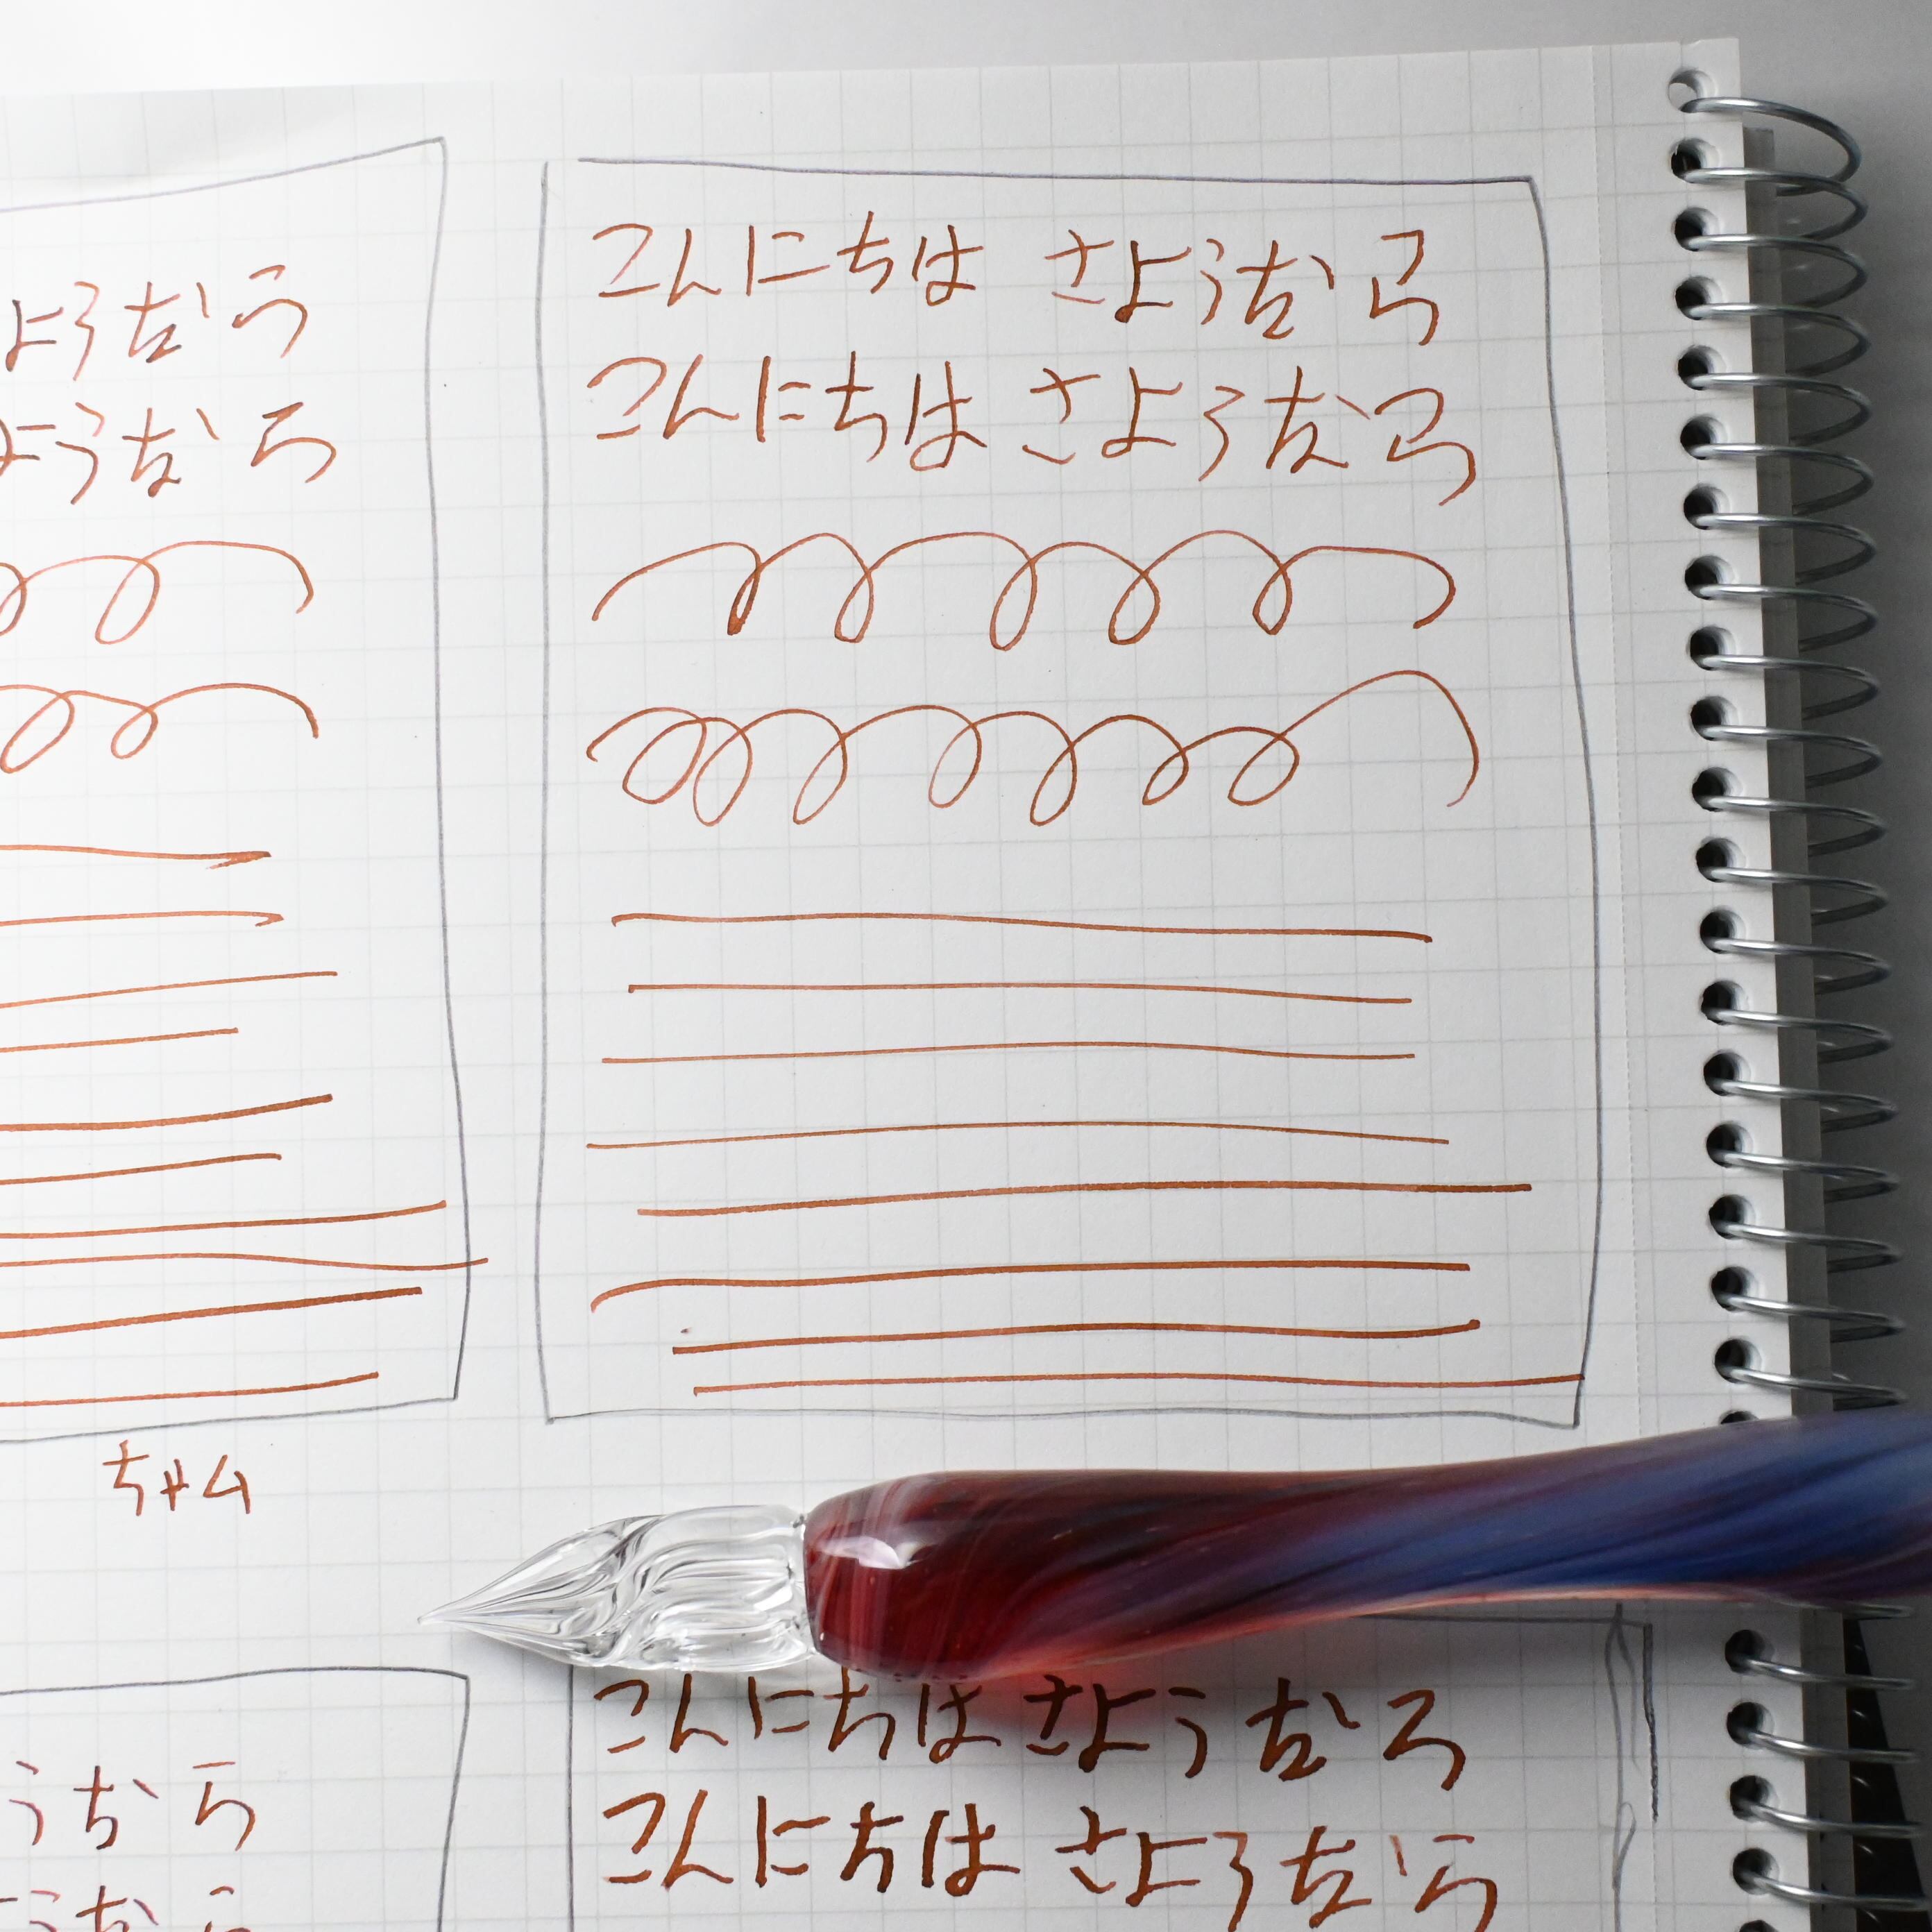 ようなら
ようなら
こんにちは さようなら
こんにちは さようなら
うなら
うなら
こんにちは さようなら
こんにちは さようなら